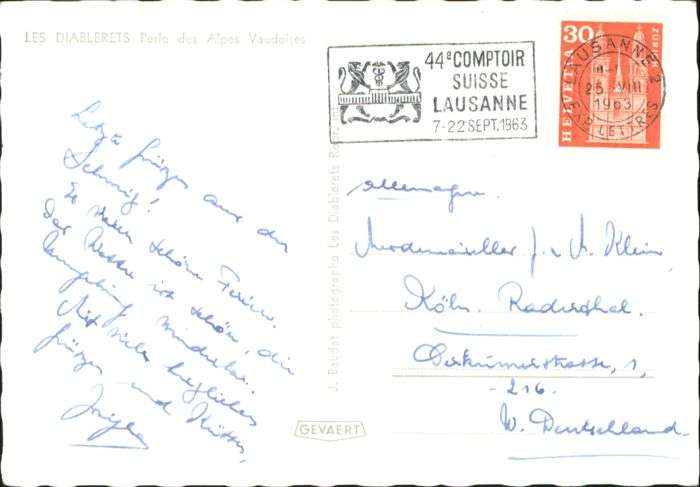 LES DIABLERETS Perle des Alpes Vaudoises
44e COMPTOIR
SUISSE
LAUSANNE
7-22 SEPT. 1963
LAUSANNE 2
25. VIII
1963
EXP. LETTRES
30
HELVETIA
ZÜRICH
Letzte Grüsse aus der
Schweiz!
Es waren schöne Ferien.
Das Wetter ist schön, die
Umgebung wunderbar.
Mit vielen herzlichen
Grüssen und Küssen,
J. Baudat photographe Les Diablerets
GEVAERT
Allemagne.
J. M. Klein
Köln. Radersthal.
strasse, 1,
- 216.
W. Deutschland.